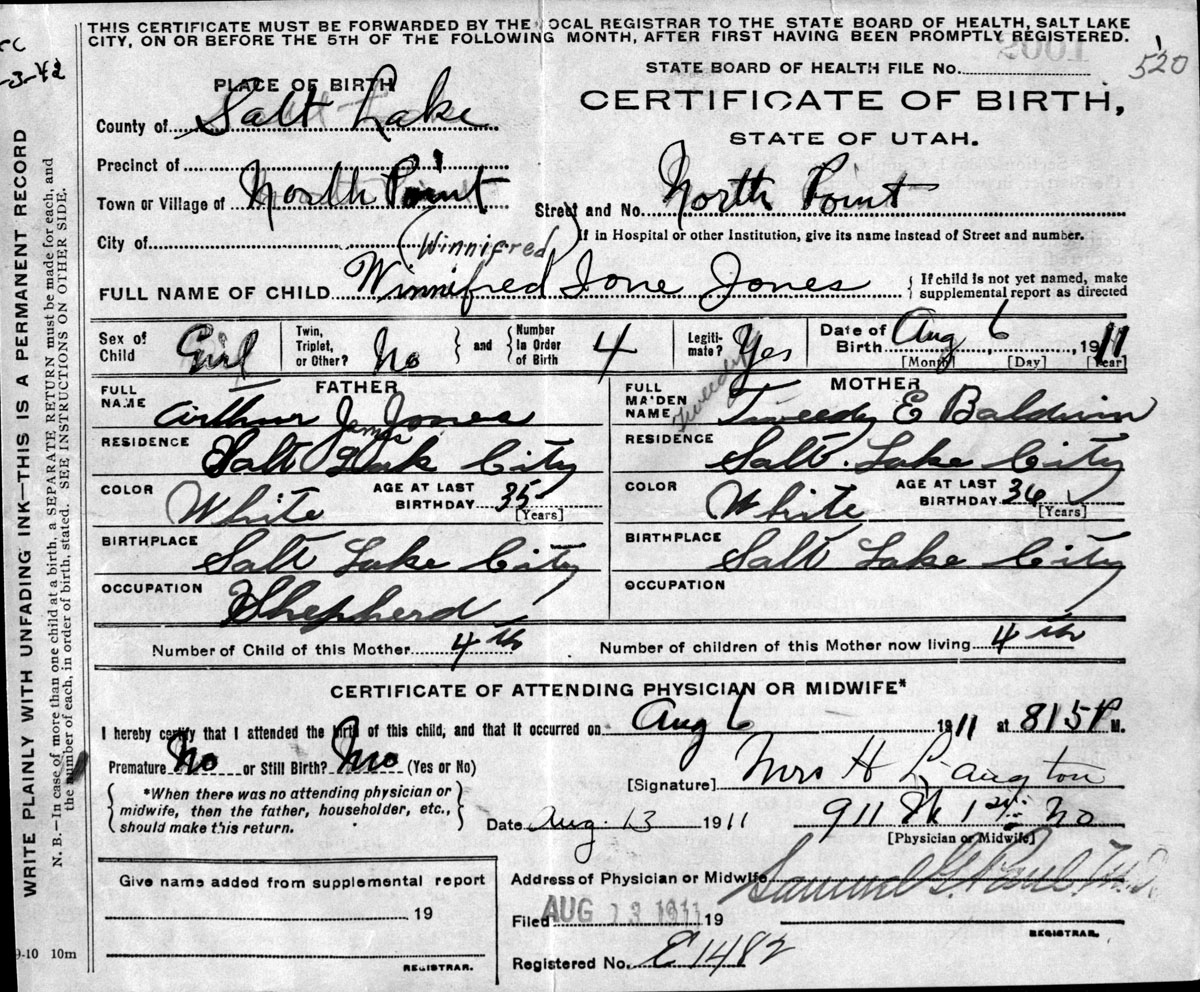 THIS CERTIFICATE MUST BE FORWARDED BY THE LOCAL REGISTRAR TO THE STATE BOARD OF HEALTH, SALT LAKE
CITY, ON OR BEFORE THE 5TH OF THE FOLLOWING MONTH, AFTER FIRST HAVING BEEN PROMPTLY REGISTERED.
520
STATE BOARD OF HEALTH FILE No.
PLACE OF BIRTH
CERTIFICATE OF BIRTH,
County of Salt Lake
STATE OF UTAH.
Precinct of
Town or Village of North Point Street and No. North Point
City of (Winnifred) If in Hospital or other Institution, give its name instead of Street and number.
FULL NAME OF CHILD Winnifred Ione Jones { If child is not yet named, make
supplemental report as directed
Sex of Child Girl Twin, Triplet, or Other? No } and { Number in Order of Birth 4 Legiti-mate? Yes Date of Birth Aug 6, 1911
[Month] [Day] [Year]
FATHER MOTHER
FULL NAME Arthur James Jones FULL MAIDEN NAME Tweedy Tweedy E Baldwin
RESIDENCE Salt Lak City RESIDENCE Salt Lake City
COLOR White AGE AT LAST BIRTHDAY 35 [Years] COLOR White AGE AT LAST BIRTHDAY 36 [Years]
BIRTHPLACE Salt Lake City BIRTHPLACE Salt Lake City
OCCUPATION Shepherd OCCUPATION
Number of Child of this Mother 4th Number of children of this Mother now living 4th
CERTIFICATE OF ATTENDING PHYSICIAN OR MIDWIFE*
I hereby certify that I attended the birth of this child, and that it occurred on Aug 6 1911 at 815 P M.
Premature No or Still Birth? No (Yes or No)
[Signature] Mrs H Langton
{ *When there was no attending physician or
midwife, then the father, householder, etc.,
should make this return. }
Date Aug. 13 1911 911 1 No
[Physician or Midwife]
Give name added from supplemental report
Address of Physician or Midwife
Samuel G Paul M.D.
19
Filed AUG 13 1911 19
REGISTRAR.
Registered No. E1482
REGISTRAR.
9-10 10m
WRITE PLAINLY WITH UNFADING INK—THIS IS A PERMANENT RECORD
N. B.—In case of more than one child at a birth, a SEPARATE RETURN must be made for each, and
the number of each, in order of birth, stated. SEE INSTRUCTIONS ON OTHER SIDE.